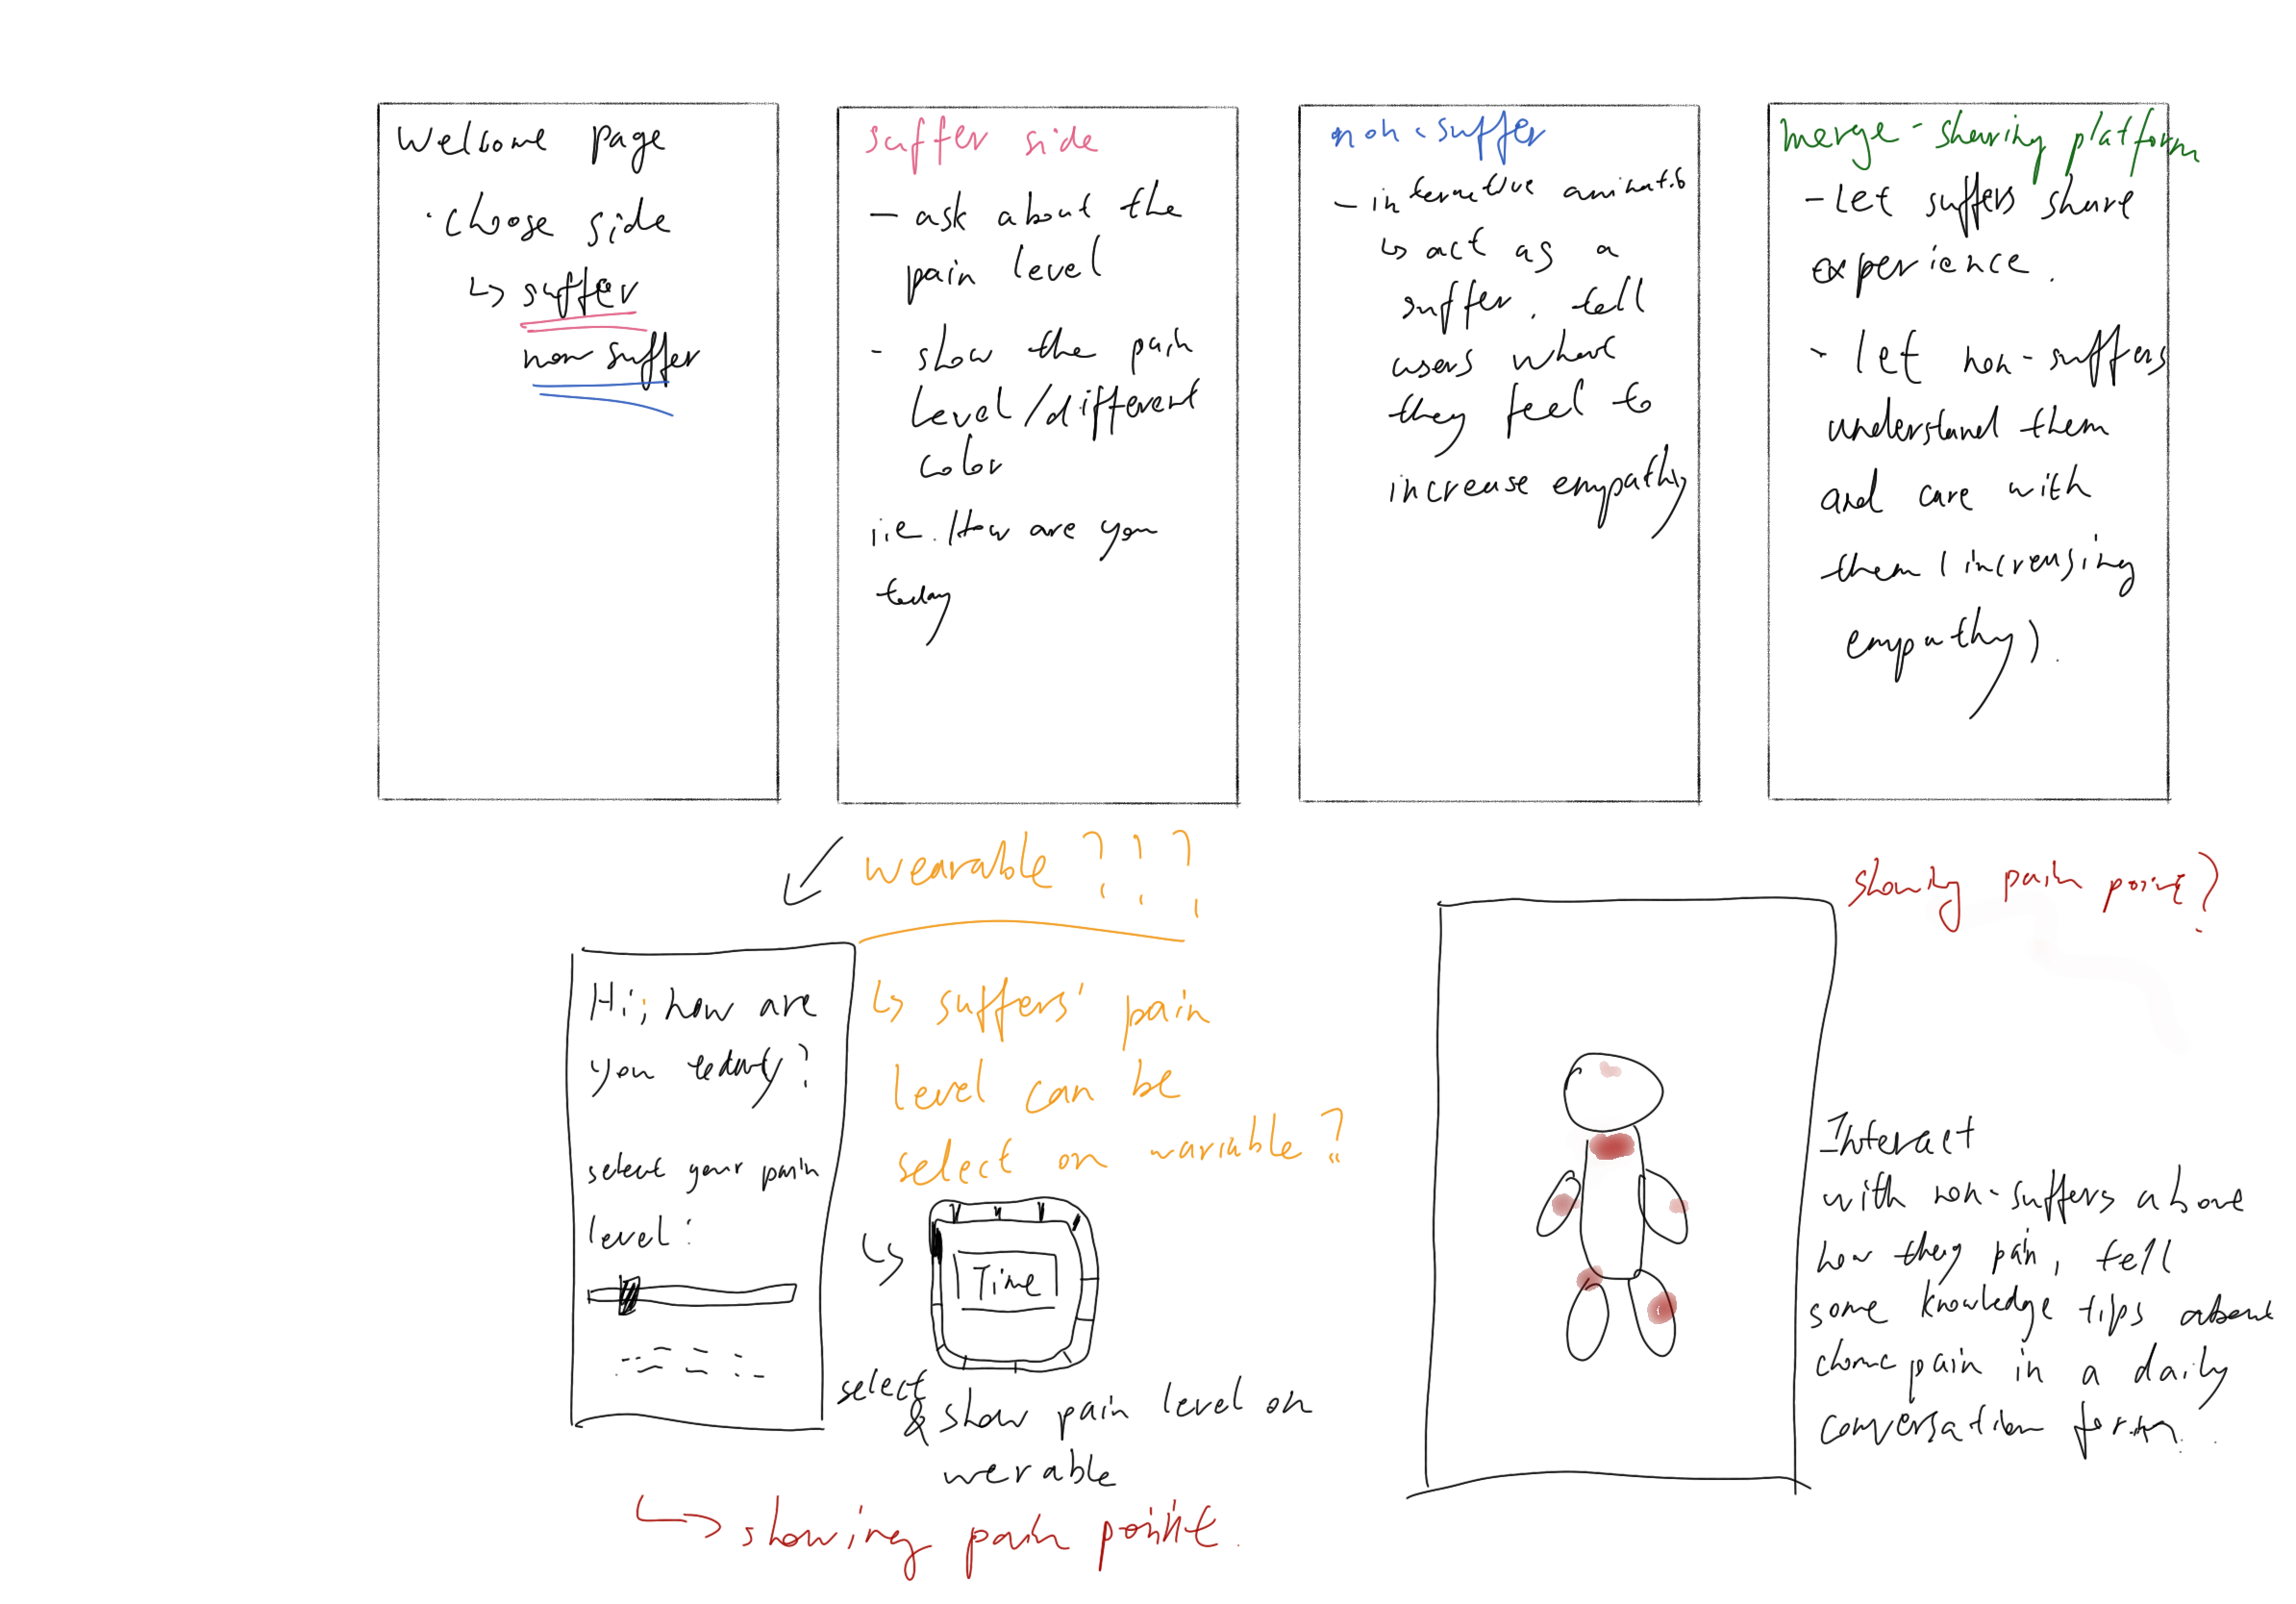 Welcome page
· choose side
↳ suffer
non suffer
suffer side
- ask about the
pain level
- show the pain
level/different
color
i.e. How are you
today
non-suffer
- interactive animatio
↳ act as a
suffer, tell
users what
they feel to
increase empathy
merge - sharing platform
- Let suffers share
experience.
- let non-suffers
understand them
and care with
them (increasing
empathy).
wearable ???
↳ suffers' pain
level can be
select on wariable?
Hi, how are
you today?
select your pain
level:
Time
select
& show pain level on
werable
↳ showing pain point.
showing pain point?
Interact
with non-suffers above
how they pain, tell
some knowledge tips about
pain in a daily
conversation form.